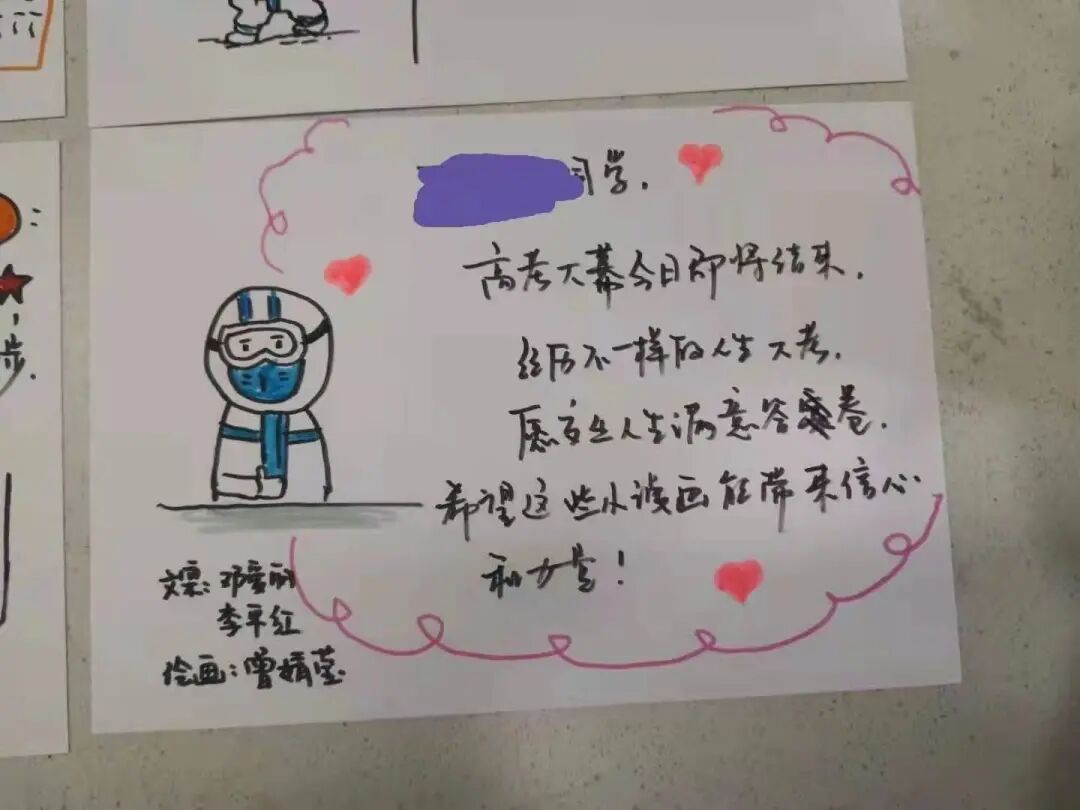 同学，
高考大幕今日即将结束，
经历不一样的人生大考，
愿交上人生满意答卷，
希望这些小漫画能带来信心
和力量！
文案：邓爱丽
李平红
绘画：曾娟莹
：
，
步.